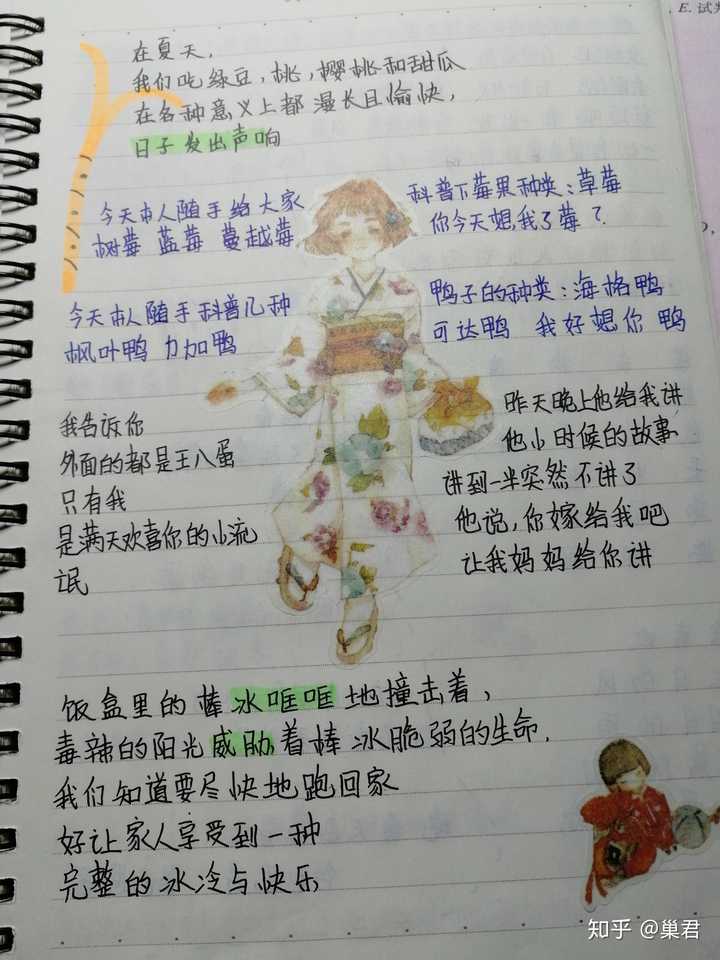 E. 试判
在夏天，
我们吃绿豆，桃，樱桃和甜瓜
在各种意义上都漫长且愉快，
日子发出声响
今天本人随手给大家
树莓 蓝莓 蔓越莓
科普下莓果种类：草莓
你今天想我了莓？
今天本人随手科普几种
枫叶鸭 力加鸭
鸭子的种类：海格鸭
可达鸭 我好想你 鸭
我告诉你
外面的都是王八蛋
只有我
是满天欢喜你的小流
氓
昨天晚上他给我讲
他小时候的故事
讲到一半突然不讲了
他说，你嫁给我吧
让我妈妈给你讲
饭盒里的棒冰哐哐地撞击着，
毒辣的阳光威胁着棒冰脆弱的生命.
我们知道要尽快地跑回家
好让家人享受到一种
完整的冰冷与快乐
知乎 @巢君